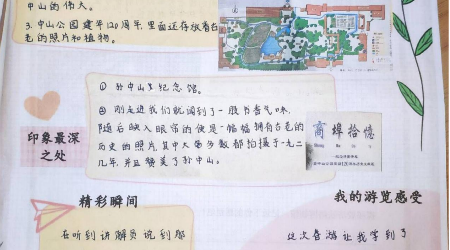 中山的伟大。
3.中山公园建年120周年,里面还存放着古
老的照片和植物。
① 孙中山纪念馆。
② 刚走进我们就闻到了一股书香气味,
随后映入眼帘的便是一幅幅拥有古老的
历史的照片,其中大多数都拍摄于一九二
几年,并且赞美了孙中山。
印象最深
之处
商埠拾憶
精彩瞬间
我的游览感受
在听到讲解员说到您
这次春游让我学到了